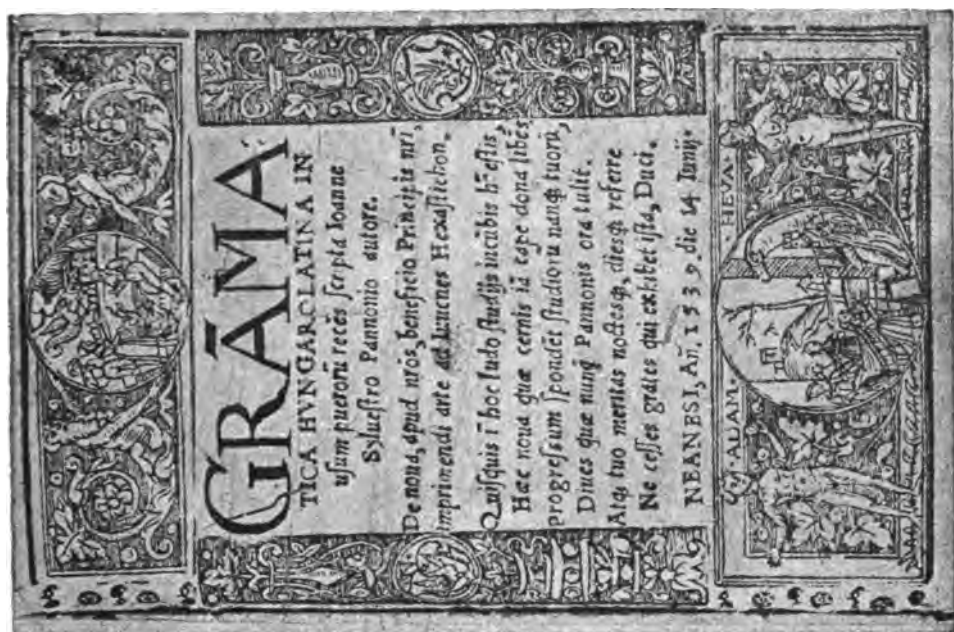 GRĀMA
TICA HVNGAROLATINA IN
uſum puerorū recēs ſcripta Ioanne
Sylueſtro Pannonio autore.
De noua, apud nr̄os, beneficio Principis nr̄i,
imprimendi arte ad Iuuenes Hexaſtichon.
Quiſquis ī hoc ludo ſtudijs incūbis h̄eſtis
Hæc noua quæ cernis iā cape dona libēs,
Progreſsum ſpondēt ſtudiorū nanq; tuorū,
Diues quæ nunq̄ Pannonis ora tulit.
Atq; tuo meritas noctesq;, diesq; refere
Ne ceſſes grates qui exhibet iſta, Duci.
NEANESI, Añ. 1539. die 14 Iunij.
ADAM. HEVA.